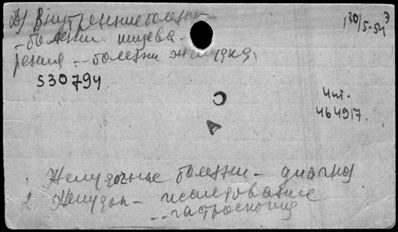 Д) Внутренние болезни
- болезни пищева-
рения - болезни желудка,
530794
20/5-54 Э
Чит.
464917.
1. Желудочные болезни - диагноз
2. Желудок - исследование
- гастроскопия